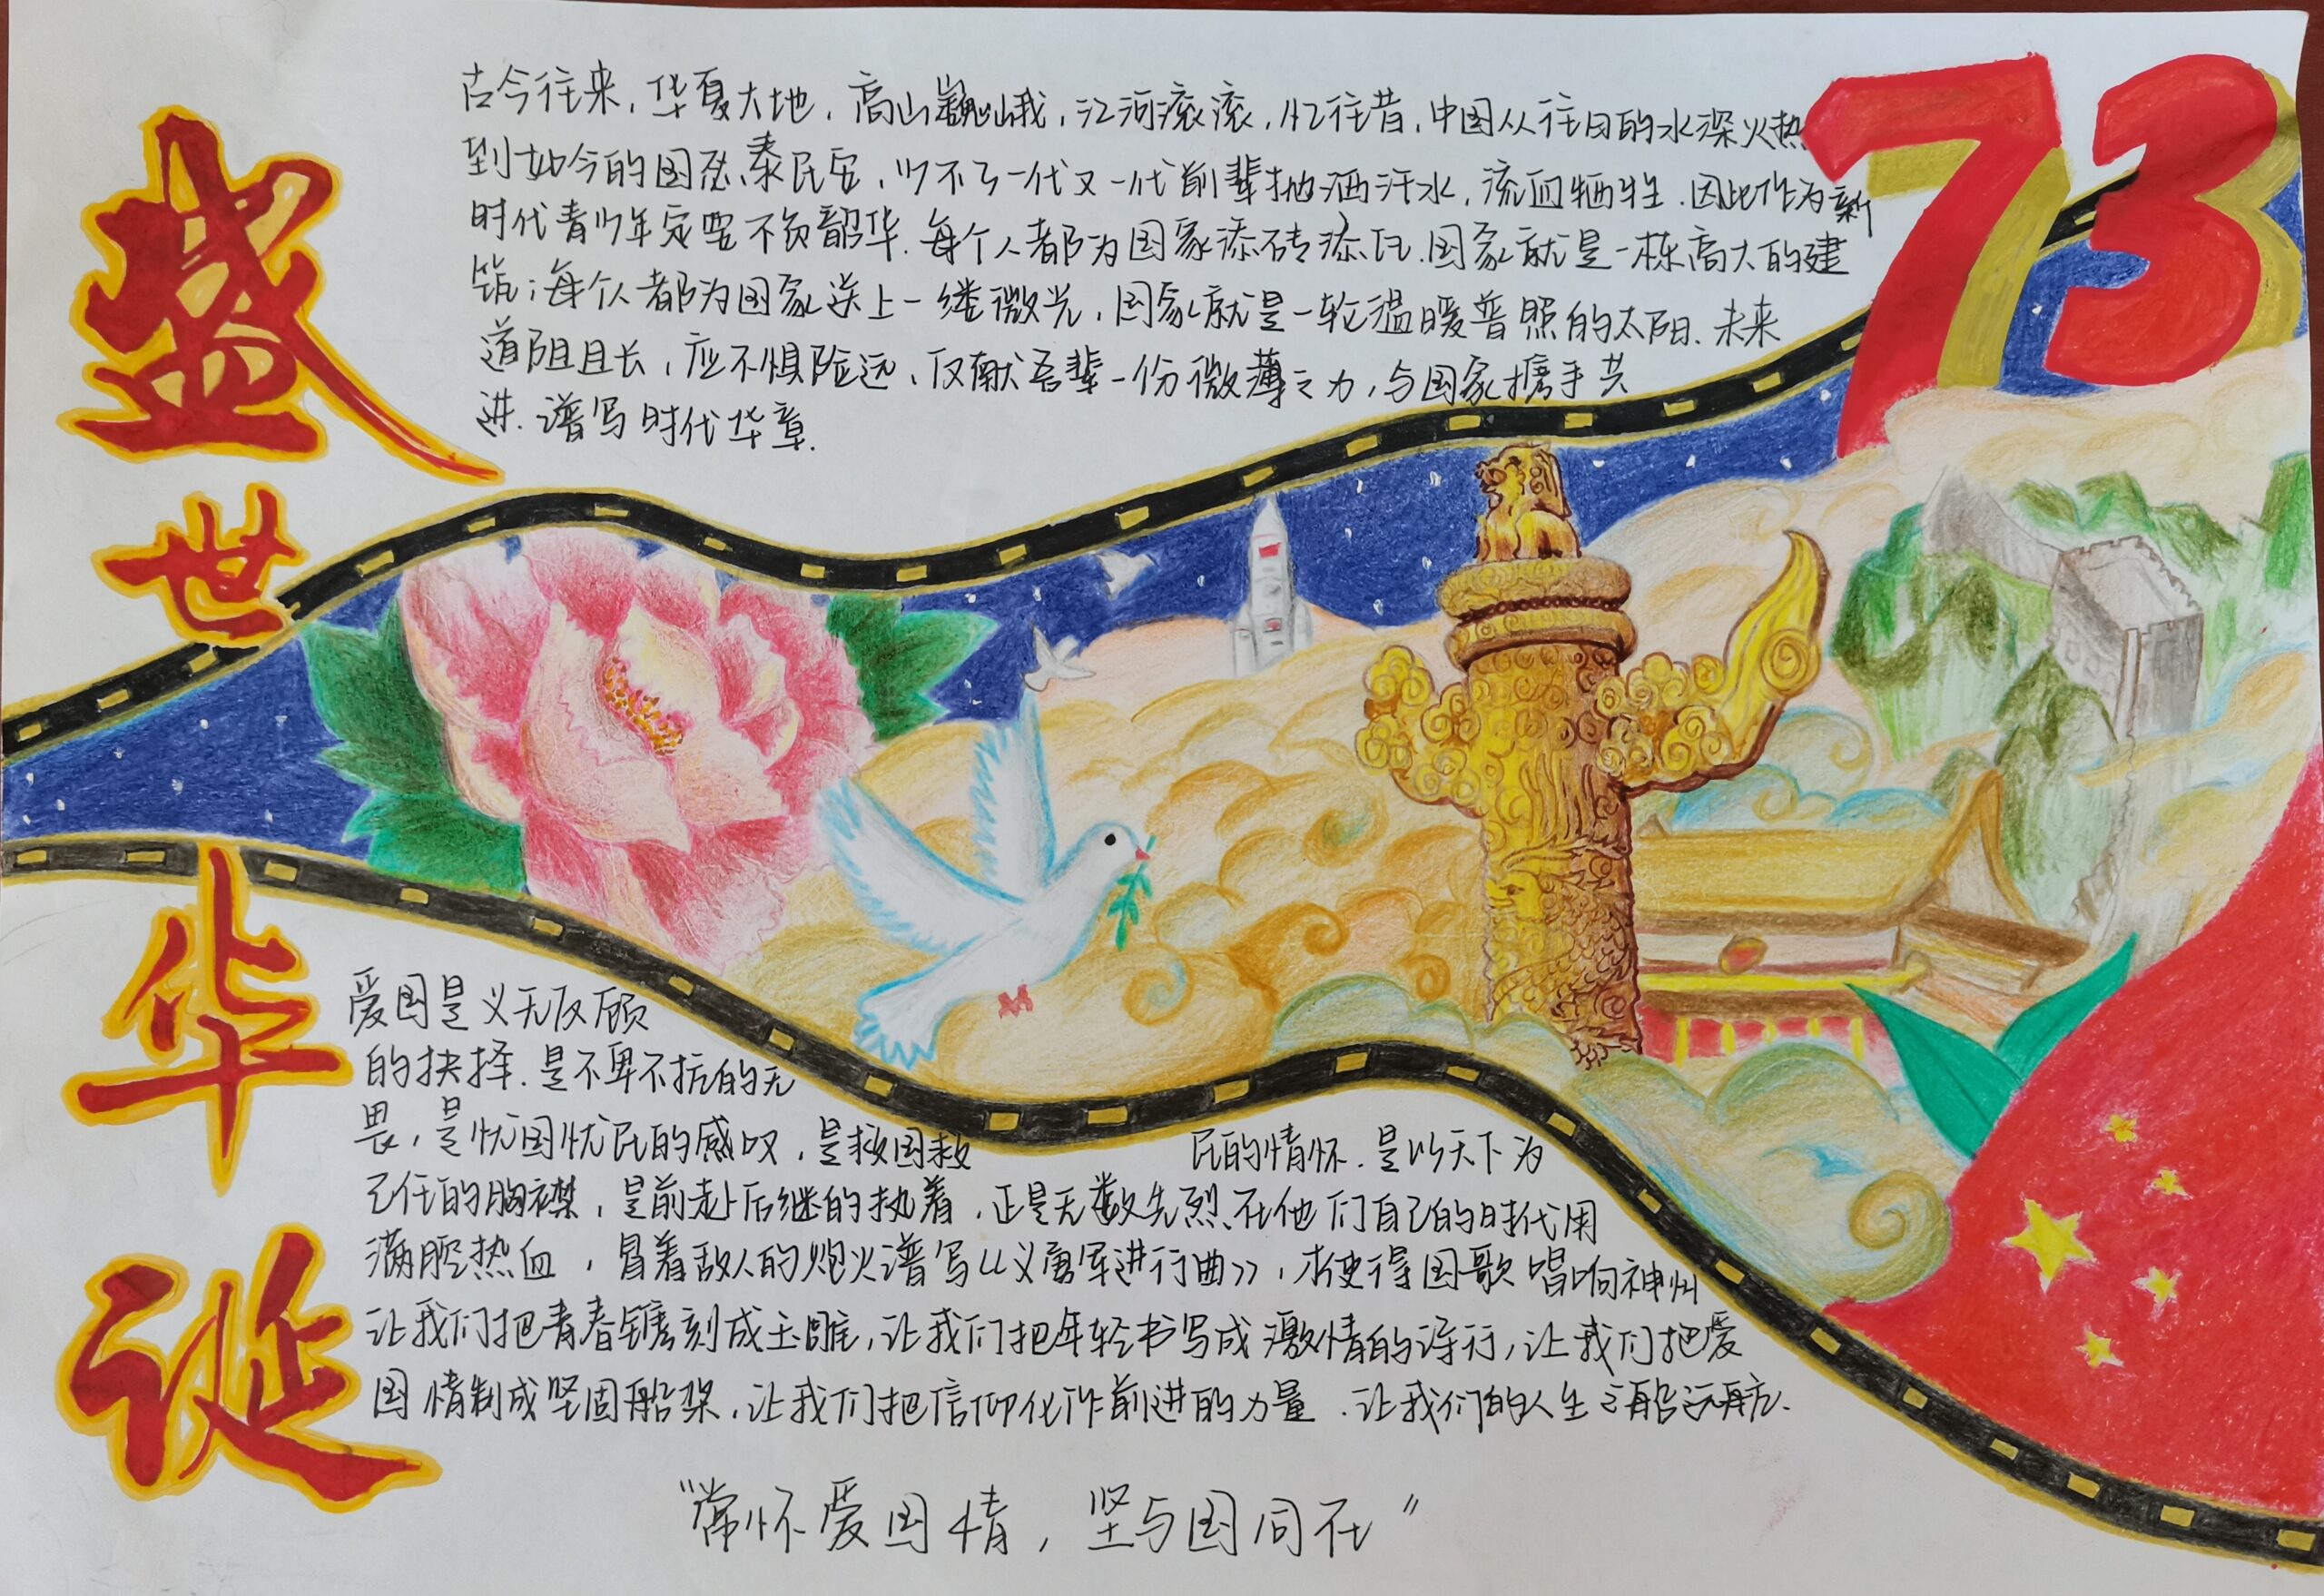 盛世华诞
73
古今往来，华夏大地，高山巍峨，江河滚滚，忆往昔，中国从往日的水深火热
到如今的国泰民安，少不了一代又一代前辈抛洒汗水，流血牺牲．因此作为新
时代青少年定要不负韶华．每个人都为国家添砖添瓦．国家就是一栋高大的建
筑；每个人都为国家送上一缕微光，国家就是一轮温暖普照的太阳．未来
道阻且长，应不惧险远，仅献吾辈一份微薄之力，与国家携手共
进．谱写时代华章．
爱国是义无反顾
的抉择．是不卑不抗的无
畏，是忧国忧民的感叹，是救国救 民的情怀．是以天下为
己任的胸襟，是前赴后继的执着，正是无数先烈在他们自己的时代用
满腔热血，冒着敌人的炮火谱写《义勇军进行曲》，才使得国歌唱响神州
让我们把青春镌刻成玉雕，让我们把年轻书写成激情的诗行，让我们把爱
国情制成坚固船桨，让我们把信仰化作前进的力量．让我们的人生之船远航．
"常怀爱国情，坚与国同在"